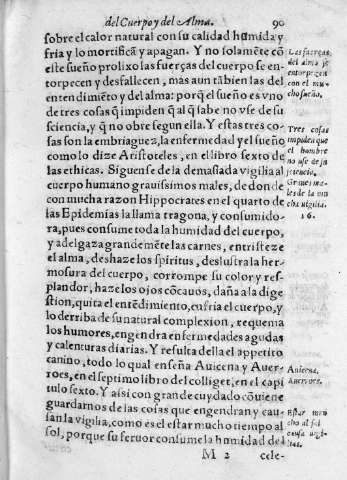 del Cuerpo y del Alma. 90
sobre el calor natural con su calidad humida y
fria y lo mortificã y apagan. Y no solamẽte cõ
este sueño prolixo las fuerças del cuerpo se en-
torpecen y desfallecen, mas aun tãbien las del
entendimiẽto y del alma: porq̃ el sueño es vno
de tres cosas q̃ impiden q̃ al q̃ sabe no vse de su
sciencia, y q̃ no obre segun ella. Y estas tres co-
sas son la embriaguez, la enfermedad y el sueño
como lo dize Aristoteles, en el libro sexto de
las ethicas. Siguense de la demasiada vigilia al
cuerpo humano grauissimos males, de donde
con mucha razon Hippocrates en el quarto de
las Epidemias la llama tragona, y consumido-
ra, pues consume toda la humidad del cuerpo,
y adelgaza grandemẽte las carnes, entristeze
el alma, deshaze los spiritus, deslustra la her-
mosura del cuerpo, corrompe su color y res-
plandor, haze los ojos cõcauos, daña a la dige
stion, quita el entẽdimiento, enfria el cuerpo, y
lo derriba de su natural complexion, requema
los humores, engendra enfermedades agudas
y calenturas diarias. Y resulta della el appetito
canino, todo lo qual enseña Auicena y Auer-
roes, en el septimo libro del colliget, en el capi
tulo sexto. Y assi con grande cuydado cõuiene
guardarnos de las cosas que engendran y cau-
san la vigilia, como es el estar mucho tiempo al
sol, porque su feruor consume la humidad del
M 2 cele-
Las fuerças
del alma se
entorpecen
con el mu-
cho sueño.
Tres cosas
impiden que
el hombre
no use de su
sciencia.
Graues ma-
les de la mu
cha uigilia.
16.
Auicena.
Auerroes.
Estar mu
cho al sol
causa uigi-
lias.